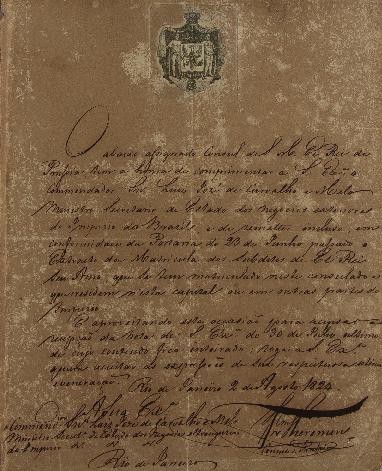 O abaixo assignado Consul de S. M. El Rei de
Prussia tem a honra de comprimentar a S. Exa. o
Commendador Snr. Luis José de Carvalho e Mello
Ministro Secretario de Estado dos Negocios estrangeiros
do Imperio do Brazil e de remetter incluso, em
conformidade da Portaria de 23 de Junho passado o
Extracto da Matricula dos Subditos de El Rei
Seu Amo, que se tem matriculado neste consulado e
que residem n'esta capital ou em outras partes do
Imperio.
E aproveitando esta ocasião para accusar a
recepção da Nota de S. Exa. de 30 de Julho ultimo
de cujo contendo fica inteirado, roga a S. Exa.
queira aceitar as expressões da sua respeitosa estima e
veneração.
Rio de Janeiro 2 de Agosto 1824.
Commend. Snr. Luis José de Carvalho e Mello
Ministro Secret. de Estado dos Negocios Estrangeiros
do Imperio
Rio de Janeiro